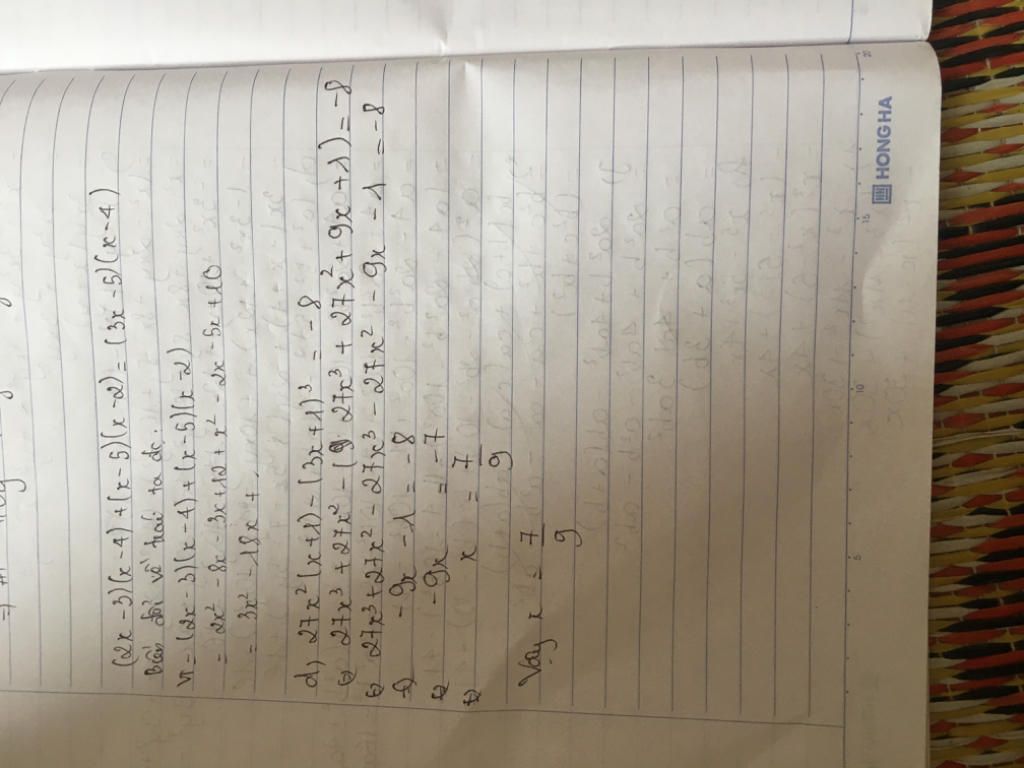 (2x - 3)(x - 4) + (x - 5)(x - 2) = (3x - 5)(x - 4)
Biến đổi vế trái ta đc.
VT = (2x - 3)(x - 4) + (x - 5)(x - 2)
= 2x² - 8x - 3x + 12 + x² - 2x - 5x + 10
= 3x² - 18x +
d) 27x²(x+1) - (3x+1)³ = -8
⇔ 27x³ + 27x² - (27x³ + 27x² + 9x + 1) = -8
⇔ 27x³ + 27x² - 27x³ - 27x² - 9x - 1 = -8
⇔ -9x - 1 = -8
⇔ -9x = -7
⇔ x = 7/9
Vậy x = 7/9
HONG HA
5 10 15 20